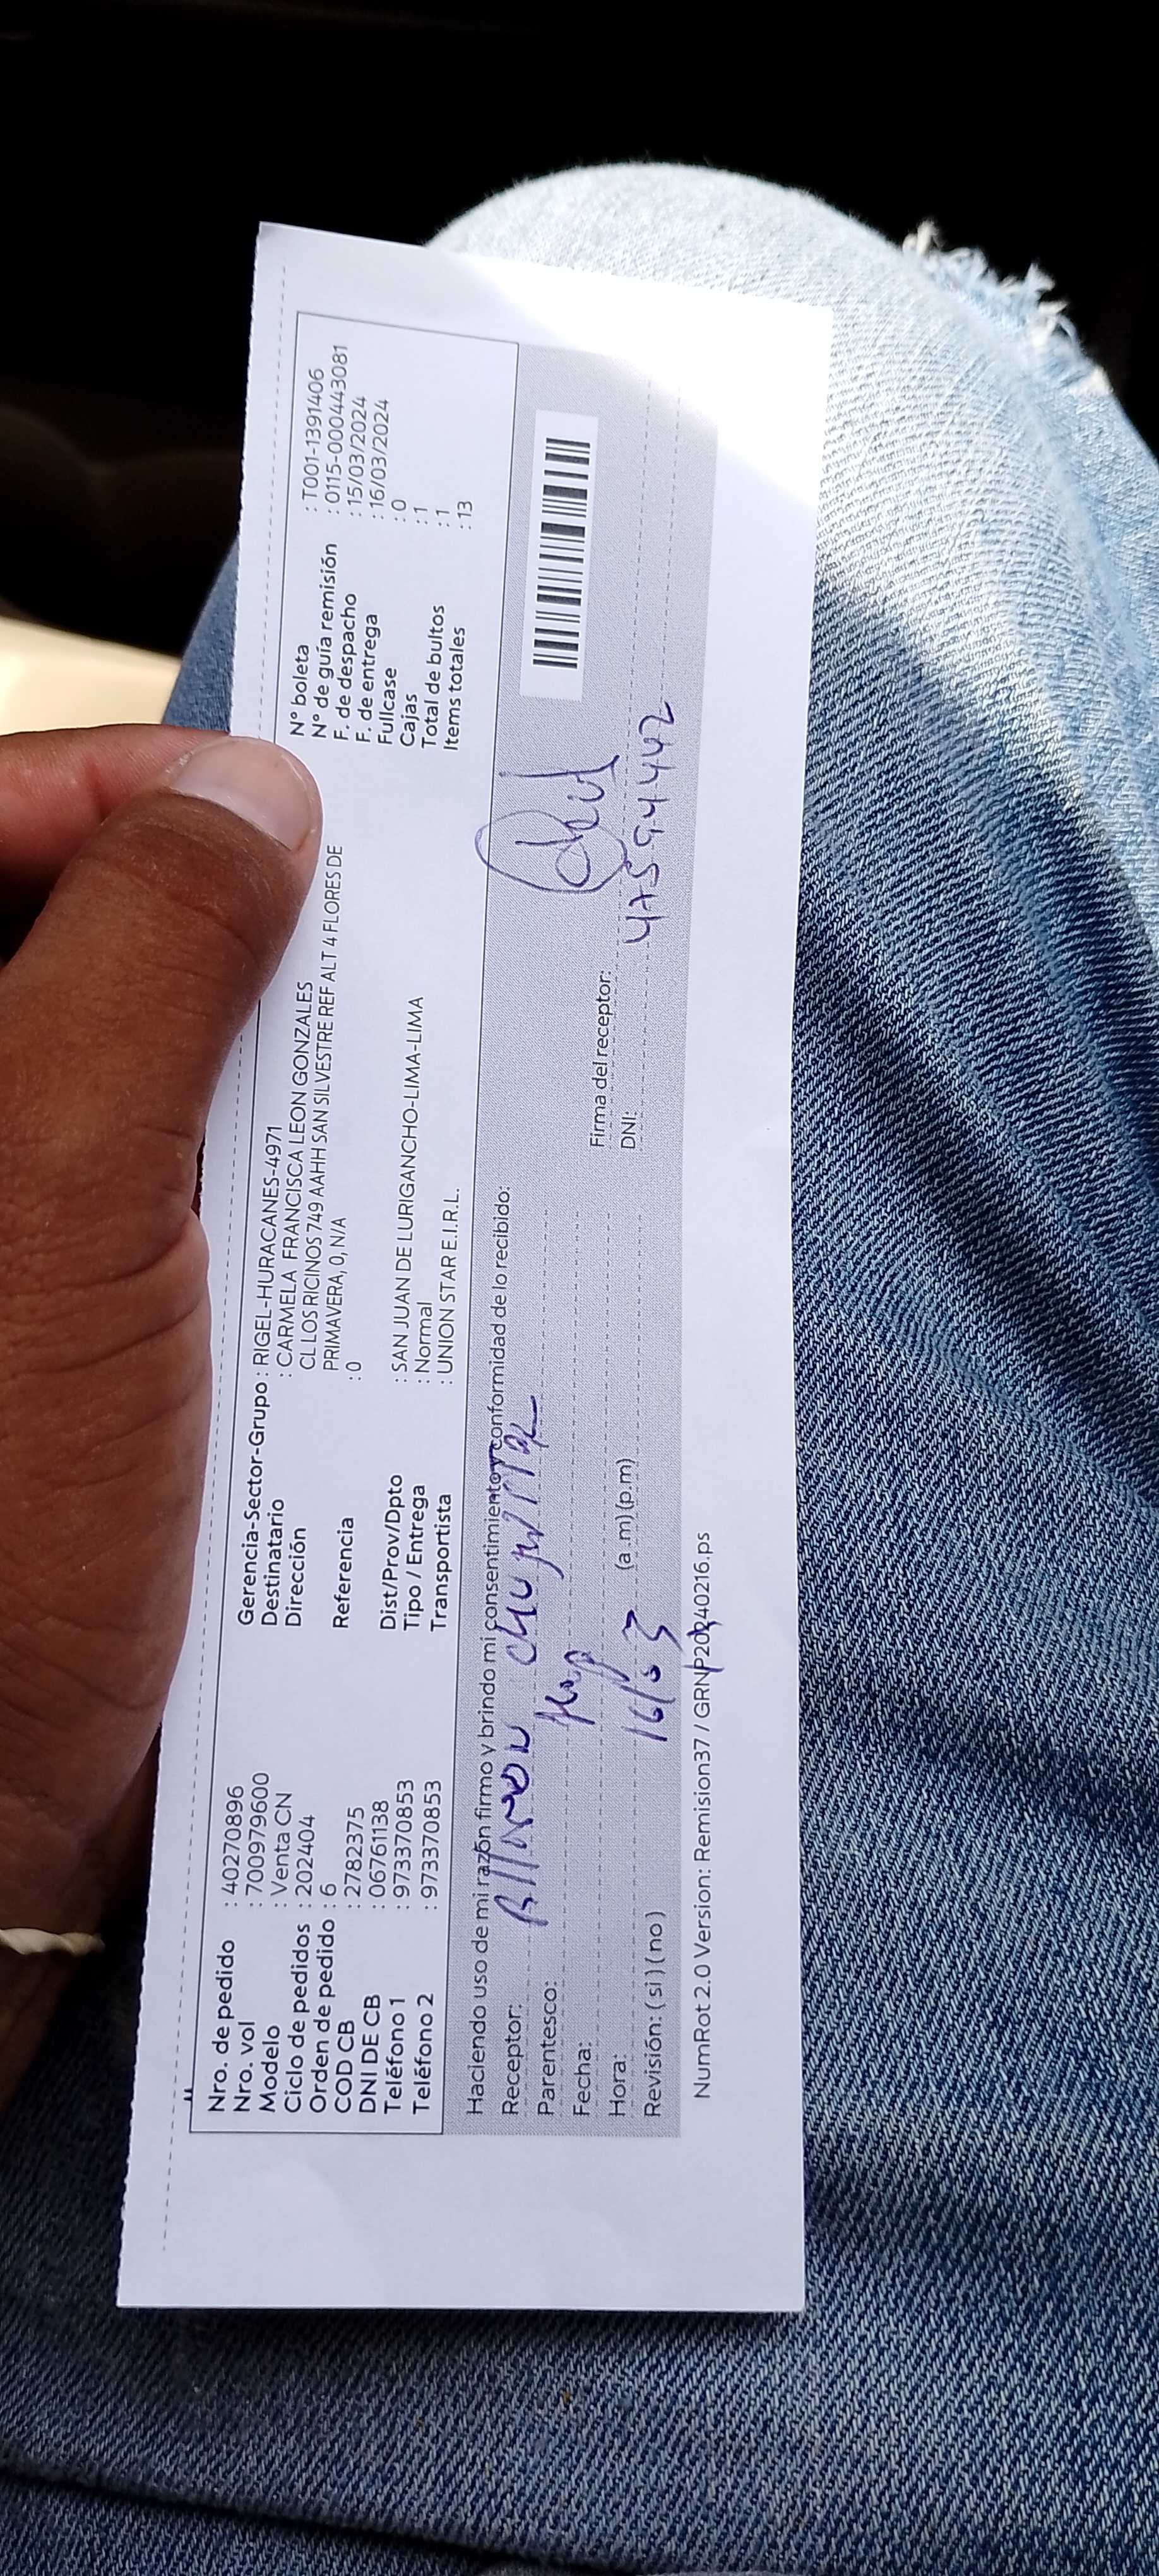 Nro. de pedido : 40270896
Nro. vol : 700979600
Modelo : Venta CN
Ciclo de pedidos : 202404
Orden de pedido : 6
COD CB : 2782375
DNI DE CB : 06761138
Teléfono 1 : 973370853
Teléfono 2 : 973370853
Gerencia-Sector-Grupo : RIGEL-HURACANES-4971
Destinatario : CARMELA FRANCISCA LEON GONZALES
Dirección CL LOS RICINOS 749 AAHH SAN SILVESTRE REF ALT 4 FLORES DE
PRIMAVERA, 0, N/A
Referencia : 0
Dist/Prov/Dpto : SAN JUAN DE LURIGANCHO-LIMA-LIMA
Tipo / Entrega : Normal
Transportista : UNION STAR E.I.R.L.
N° boleta : T001-1391406
N° de guía remisión : 0115-0004443081
F. de despacho : 15/03/2024
F. de entrega : 16/03/2024
Fullcase : 0
Cajas : 1
Total de bultos : 1
Items totales : 13
Haciendo uso de mi razón firmo y brindo mi consentimiento y conformidad de lo recibido:
Receptor:
Parentesco:
Fecha: 16/03
Hora: (a.m) (p.m)
Revisión: ( si ) ( no )
Firma del receptor:
DNI: 47594442
NumRot 2.0 Version: Remision37 / GRNP20240216.ps